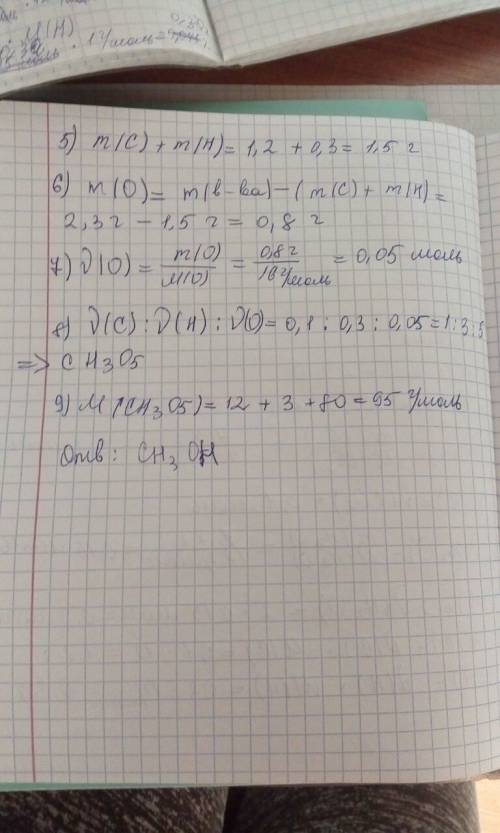 : M(H)
· 1 г/моль =
5) m(C) + m(H) = 1,2 + 0,3 = 1,5 г
6) m(O) = m(в-ва) - (m(C) + m(H) =
2,3 г - 1,5 г = 0,8 г
7) ν(O) = m(O)/M(O) = 0,8 г/16 г/моль = 0,05 моль
8) ν(C) : ν(H) : ν(O) = 0,1 : 0,3 : 0,05 = 1 : 3 : 5
=> CH3O5
9) M (CH3O5) = 12 + 3 + 80 = 95 г/моль
Отв: CH3 OH